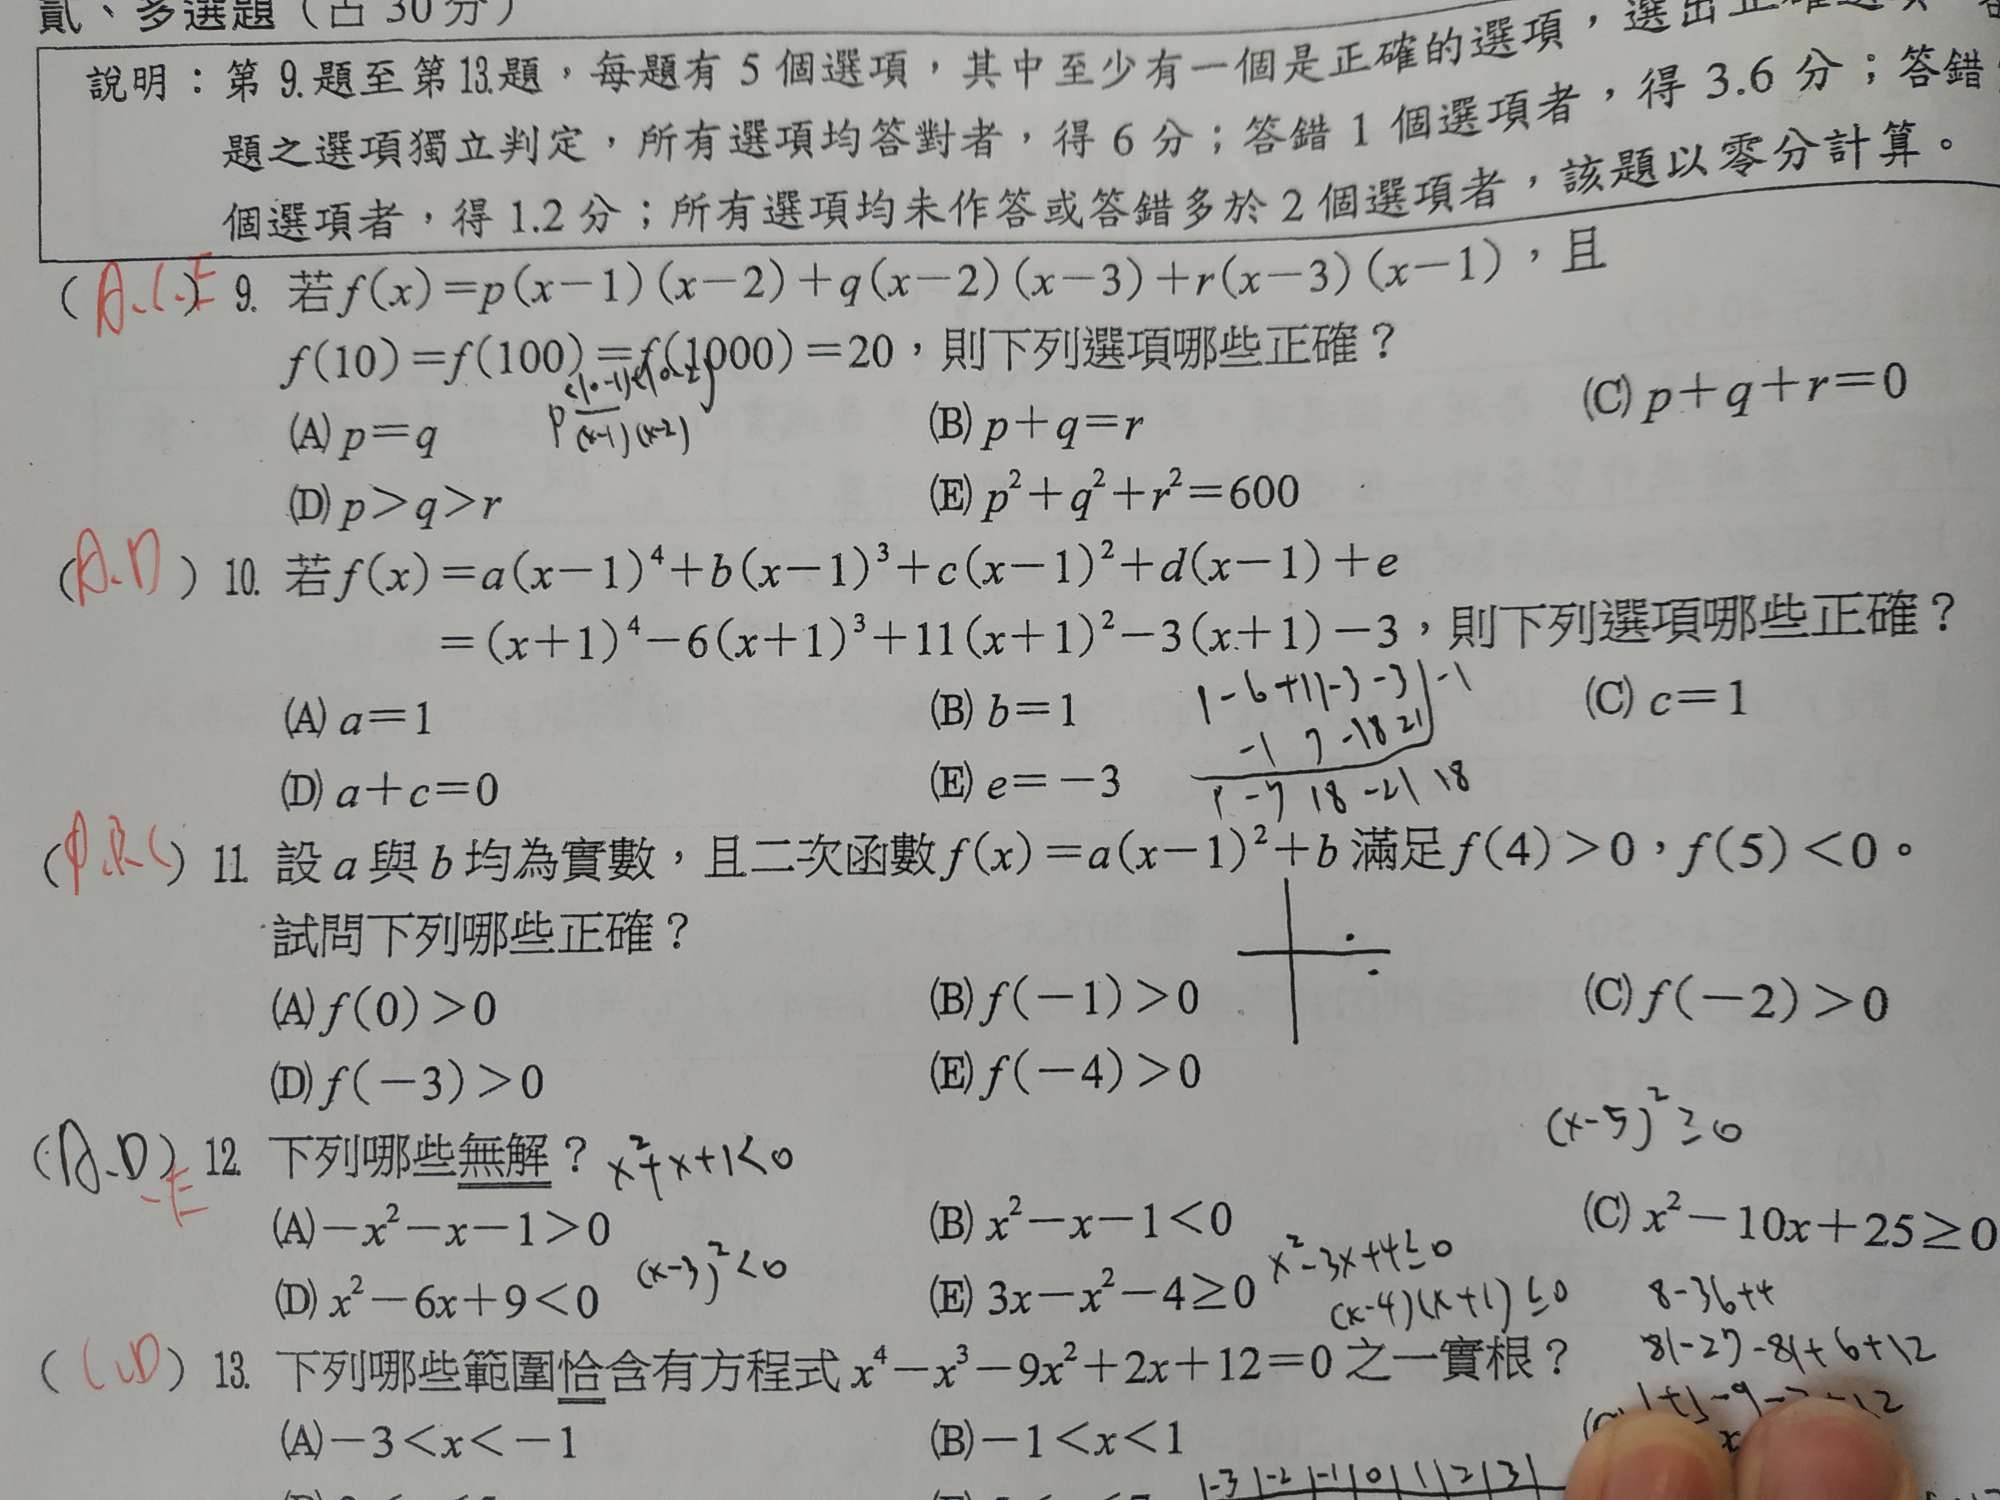 貳、多選題（占 30 分）
說明：第 9.題至第 13.題，每題有 5 個選項，其中至少有一個是正確的選項，選出正確選項
題之選項獨立判定，所有選項均答對者，得 6 分；答錯 1 個選項者，得 3.6 分；答錯
個選項者，得 1.2 分；所有選項均未作答或答錯多於 2 個選項者，該題以零分計算。
(A.C.E) 9. 若 f(x)=p(x−1)(x−2)+q(x−2)(x−3)+r(x−3)(x−1)，且
f(10)=f(100)=f(1000)=20，則下列選項哪些正確？
(10-1)(10-2)
p (x-1)(x-2)
(A) p=q (B) p+q=r (C) p+q+r=0
(D) p>q>r (E) p²+q²+r²=600
(A.D) 10. 若 f(x)=a(x−1)⁴+b(x−1)³+c(x−1)²+d(x−1)+e
=(x+1)⁴−6(x+1)³+11(x+1)²−3(x+1)−3，則下列選項哪些正確？
1-6+11-3-3|-1
(A) a=1 (B) b=1 (C) c=1
-1 7 -18 21
(D) a+c=0 (E) e=−3
1 -7 18 -21 18
(A.B.C) 11. 設 a 與 b 均為實數，且二次函數 f(x)=a(x−1)²+b 滿足 f(4)>0，f(5)<0。
試問下列哪些正確？
(A) f(0)>0 (B) f(−1)>0 (C) f(−2)>0
(D) f(−3)>0 (E) f(−4)>0
(x-5)²≥0
(A.D) 12. 下列哪些無解？ x²+x+1<0
-E
(A) −x²−x−1>0 (B) x²−x−1<0 (C) x²−10x+25≥0
(D) x²−6x+9<0 (x-3)²<0 (E) 3x−x²−4≥0 x²-3x+4≤0
(x-4)(x+1)≤0
8-36+4
81-27-81+6+12
(C.D) 13. 下列哪些範圍恰含有方程式 x⁴−x³−9x²+2x+12=0 之一實根？
1+1-9-2+12
(A) −3<x<−1 (B) −1<x<1
|-3|-2|-1|0|1|2|3|